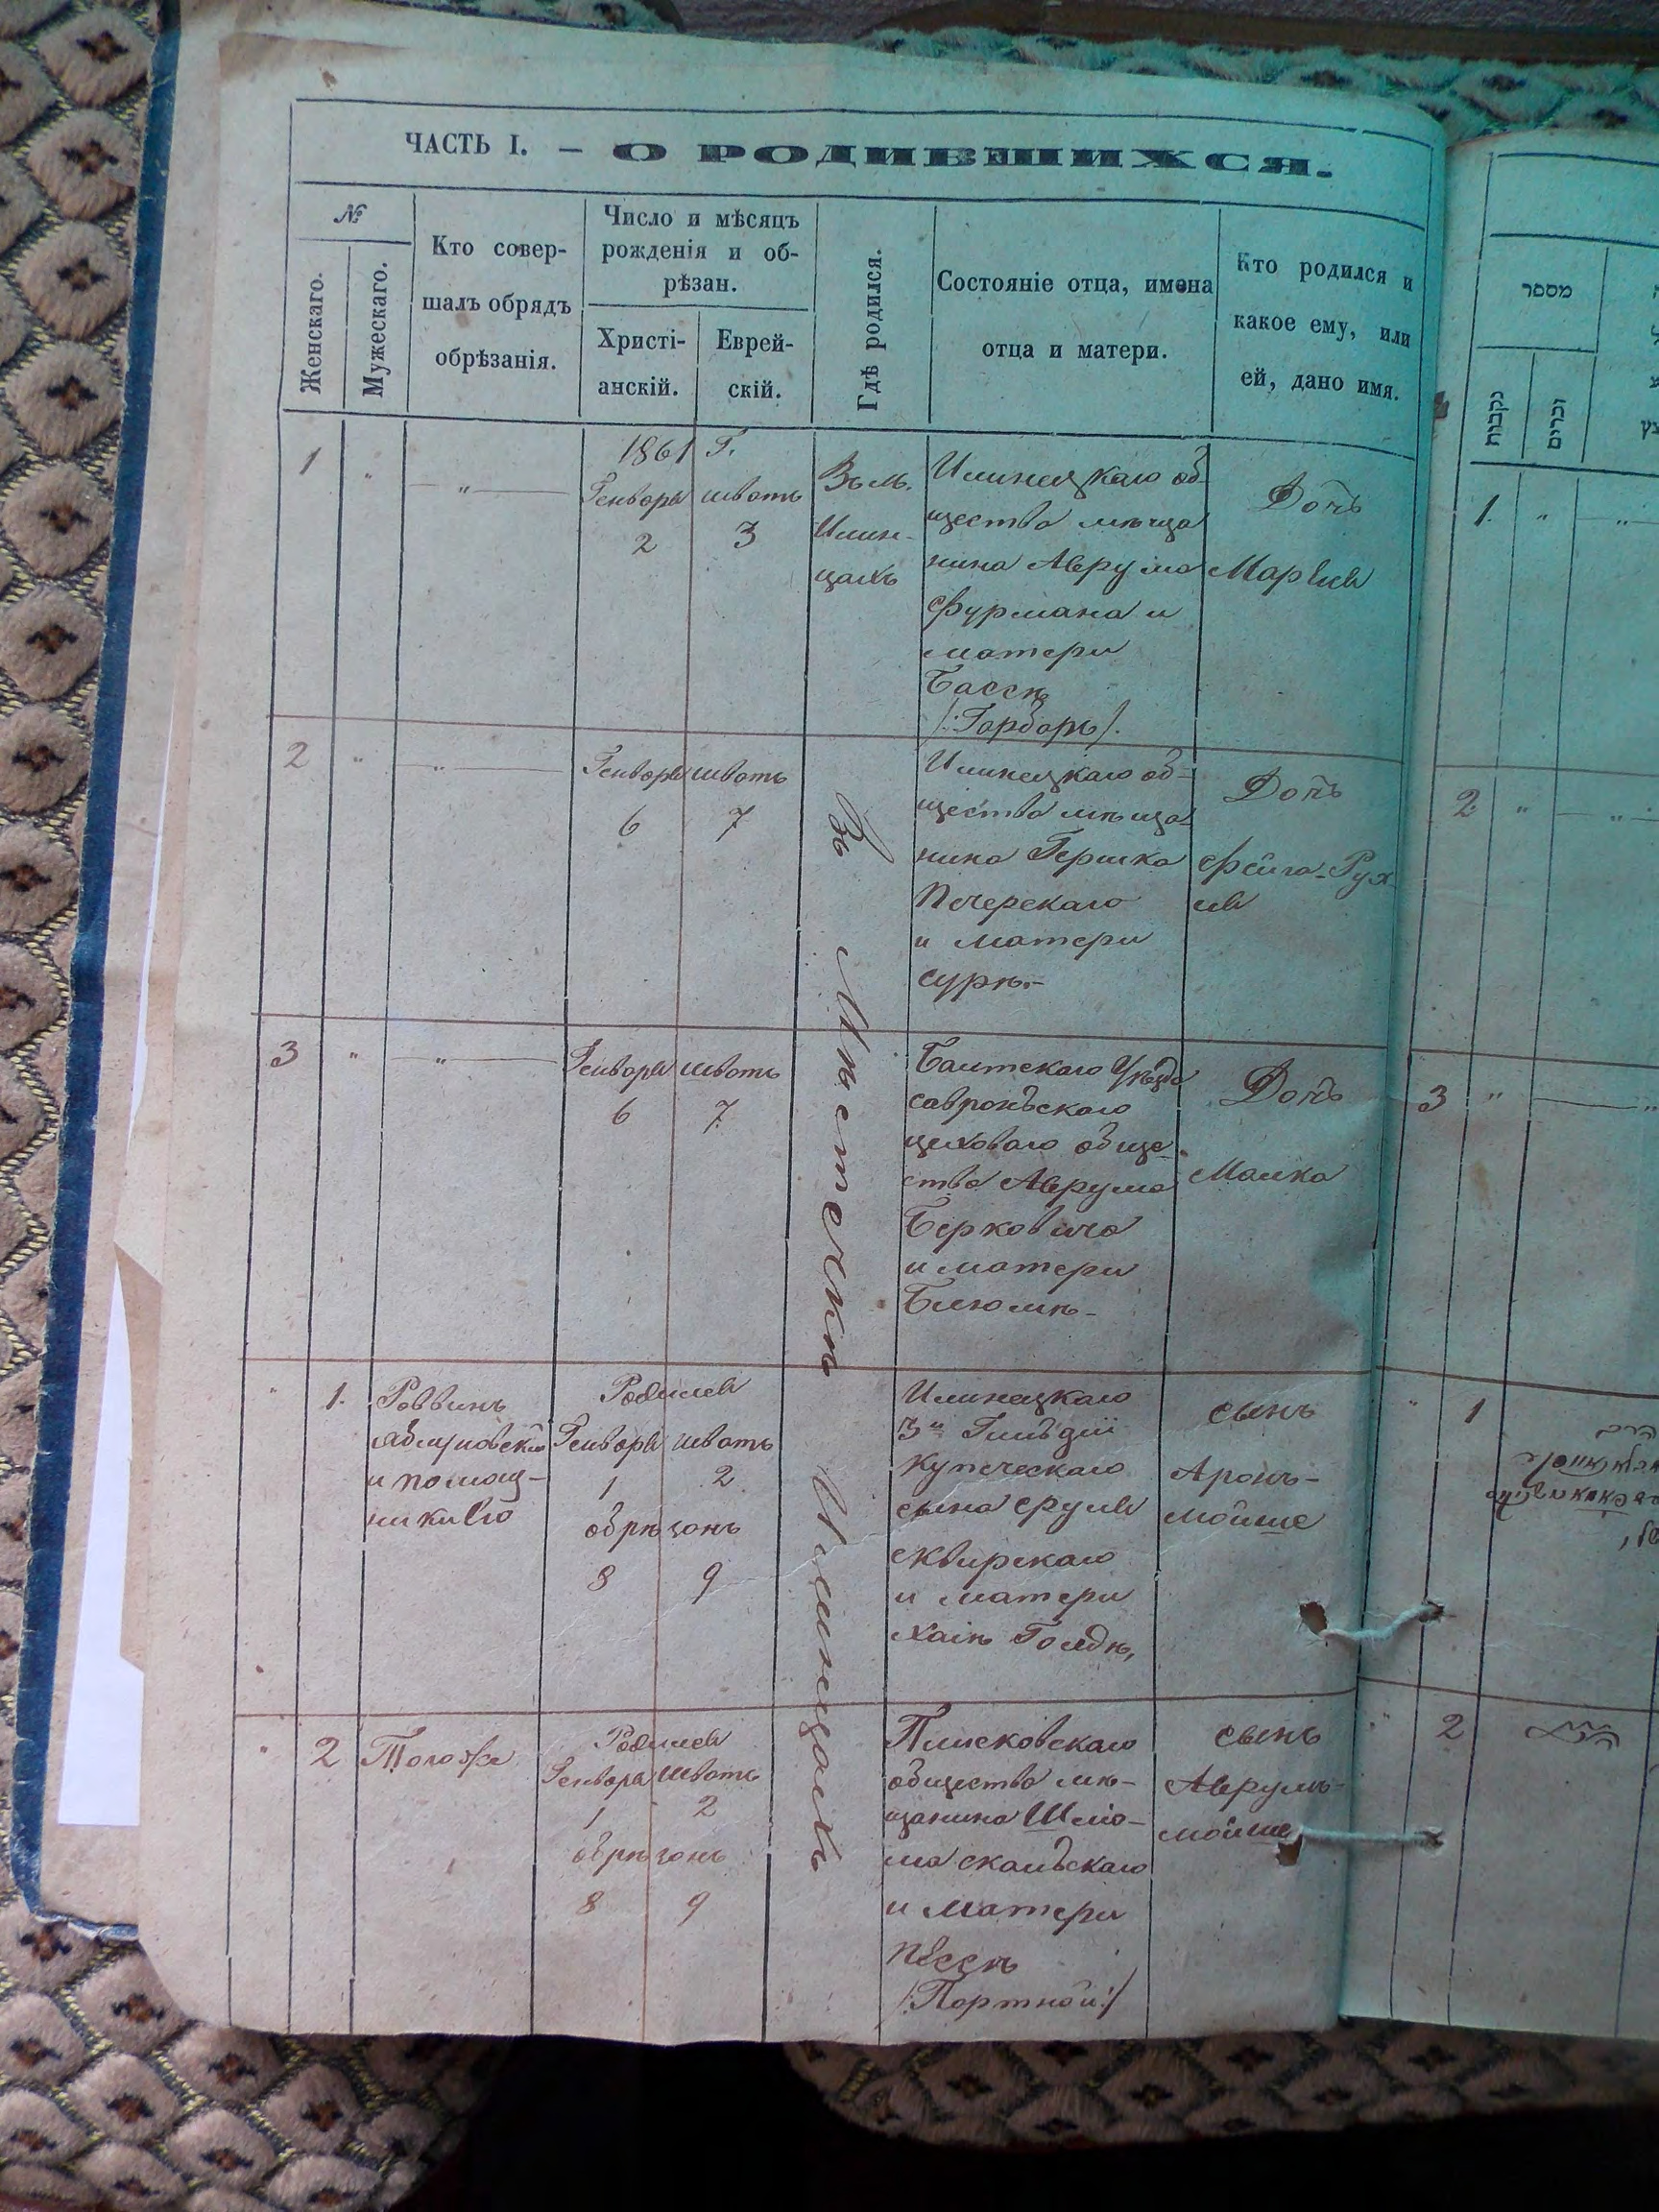 ЧАСТЬ I. — О РОДИВШИХСЯ.
№
Женскаго.
Мужескаго.
Кто совер-
шалъ обрядъ
обрѣзанія.
Число и мѣсяцъ
рожденія и об-
рѣзан.
Христі-
анскій.
Еврей-
скій.
Гдѣ родился.
Состояніе отца, имена
отца и матери.
Кто родился и
какое ему, или
ей, дано имя.
1 " — " —
1861 Г.
Генваря шватъ
2 3
Въ м.
Илин-
цахъ
Илинецкаго об-
щества мѣща
нина Аврума
Фурмана и
матери
Бассѣ
/:Гарбарь/.
Дочь
Марьям
2 " — " —
Генваря шватъ
6 7
Въ Мѣстечкѣ Илинцахъ
Илинецкаго об-
щества мѣща-
нина Гершка
Печерскаго
и матери
сурѣ.-
Дочь
Фейга-Рух
ля
3 " — " —
Генваря шватъ
6 7
Балтскаго Уѣзда
савронъскаго
цеховаго обще-
ства Аврума
Берковича
и матери
Блюмѣ-
Дочь
Малка
" 1.
Раввинъ
и помощ-
никъ Его
Родился
Генваря шватъ
1 2
обрѣзанъ
8 9
Илинецкаго
3й Гильдіи
купеческаго
сына сруля
сквирскаго
и матери
Хаїѣ Голдѣ,
сынъ
Аронъ-
мойше
" 2
Тогоже
Родился
Генваря шватъ
1 2
обрѣзанъ
8 9
Плисковскаго
общества мѣ-
щанина Шлїо-
ма скалъскаго
и матери
Пессѣ
/:Портной:/
сынъ
Аврумъ-
мойше
מספר
נקבות
זכרים
1. " — "
2. " — "
3 " — "
" 1
" 2